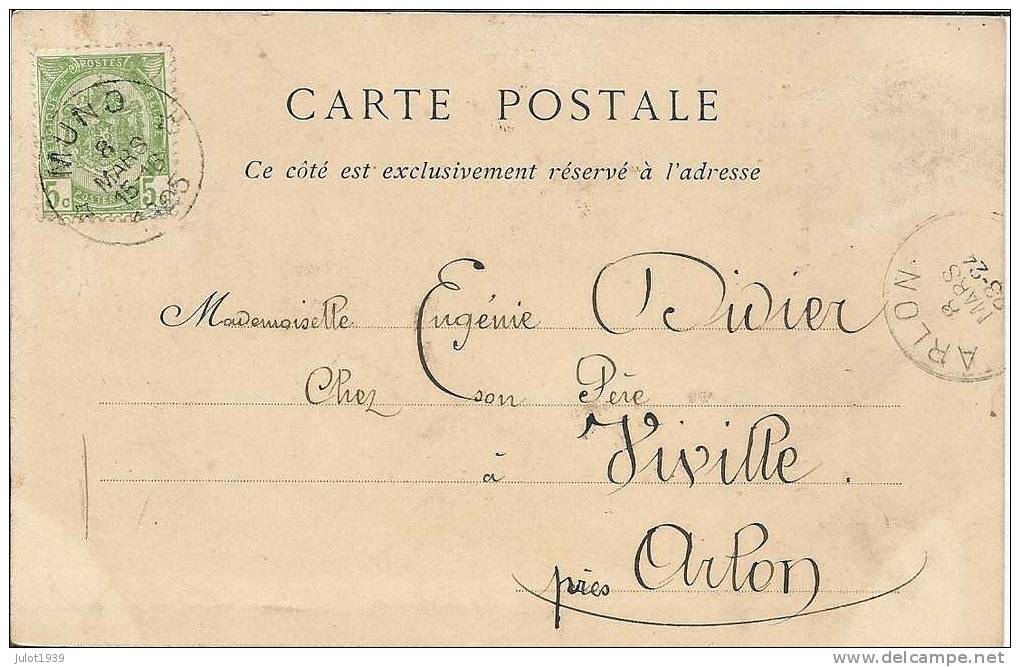 POSTES
5c 5c
MUNO
8
MARS
15-16
1905
CARTE POSTALE
Ce côté est exclusivement réservé à l'adresse
ARLON
8
MARS
23-24
Mademoiselle Eugénie Didier
Chez son Père
à Viville.
près Arlon
julot1939
delcampe.net